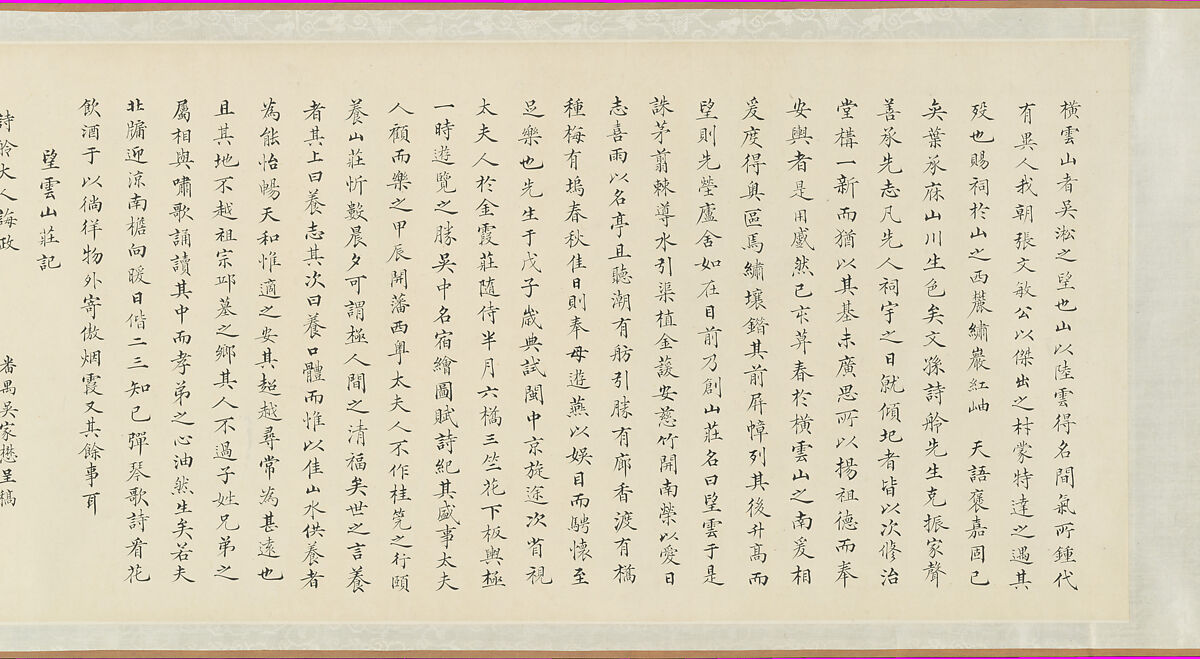 橫雲山者吳淞之望也山以陸雲得名間氣所鍾代
有異人我朝張文敏公以傑出之材蒙特達之遇其
歿也賜祠於山之西麓繡巖紅岫 天語褒嘉固已
奕葉承庥山川生色矣文孫詩舲先生克振家聲
善承先志凡先人祠宇之日就傾圯者皆以次修治
堂構一新而猶以其基未廣思所以揚祖德而奉
安輿者是用慼然己亥葬春於橫雲山之南爰相
爰度得奧區焉繡壤錯其前屏幛列其後升高而
望則先塋廬舍如在目前乃創山莊名曰望雲于是
誅茅翦棘導水引渠植金萲安慈竹開南榮以愛日
志喜雨以名亭且聽潮有舫引勝有廊香渡有橋
種梅有塢春秋佳日則奉母遊燕以娛目而騁懷至
足樂也先生于戊子嵗典試閩中京旋途次省視
太夫人於金霞莊隨侍半月六橋三竺花下板輿極
一時遊覽之勝吳中名宿繪圖賦詩紀其盛事太夫
人顧而樂之甲辰開藩西粵太夫人不作桂筦之行頤
養山莊忻數晨夕可謂極人間之清福矣世之言養
者其上曰養志其次曰養口體而惟以佳山水供養者
為能怡暢天和惟適之安其超越尋常為甚遠也
且其地不越祖宗邱墓之鄉其人不過子姓兄弟之
屬相與嘯歌誦讀其中而孝弟之心油然生矣若夫
北牖迎涼南檐向暖日偕二三知已彈琴歌詩看花
飲酒于以徜徉物外寄傲烟霞又其餘事耳
望雲山莊記
詩舲大人誨政 番禺吳家懋呈稿